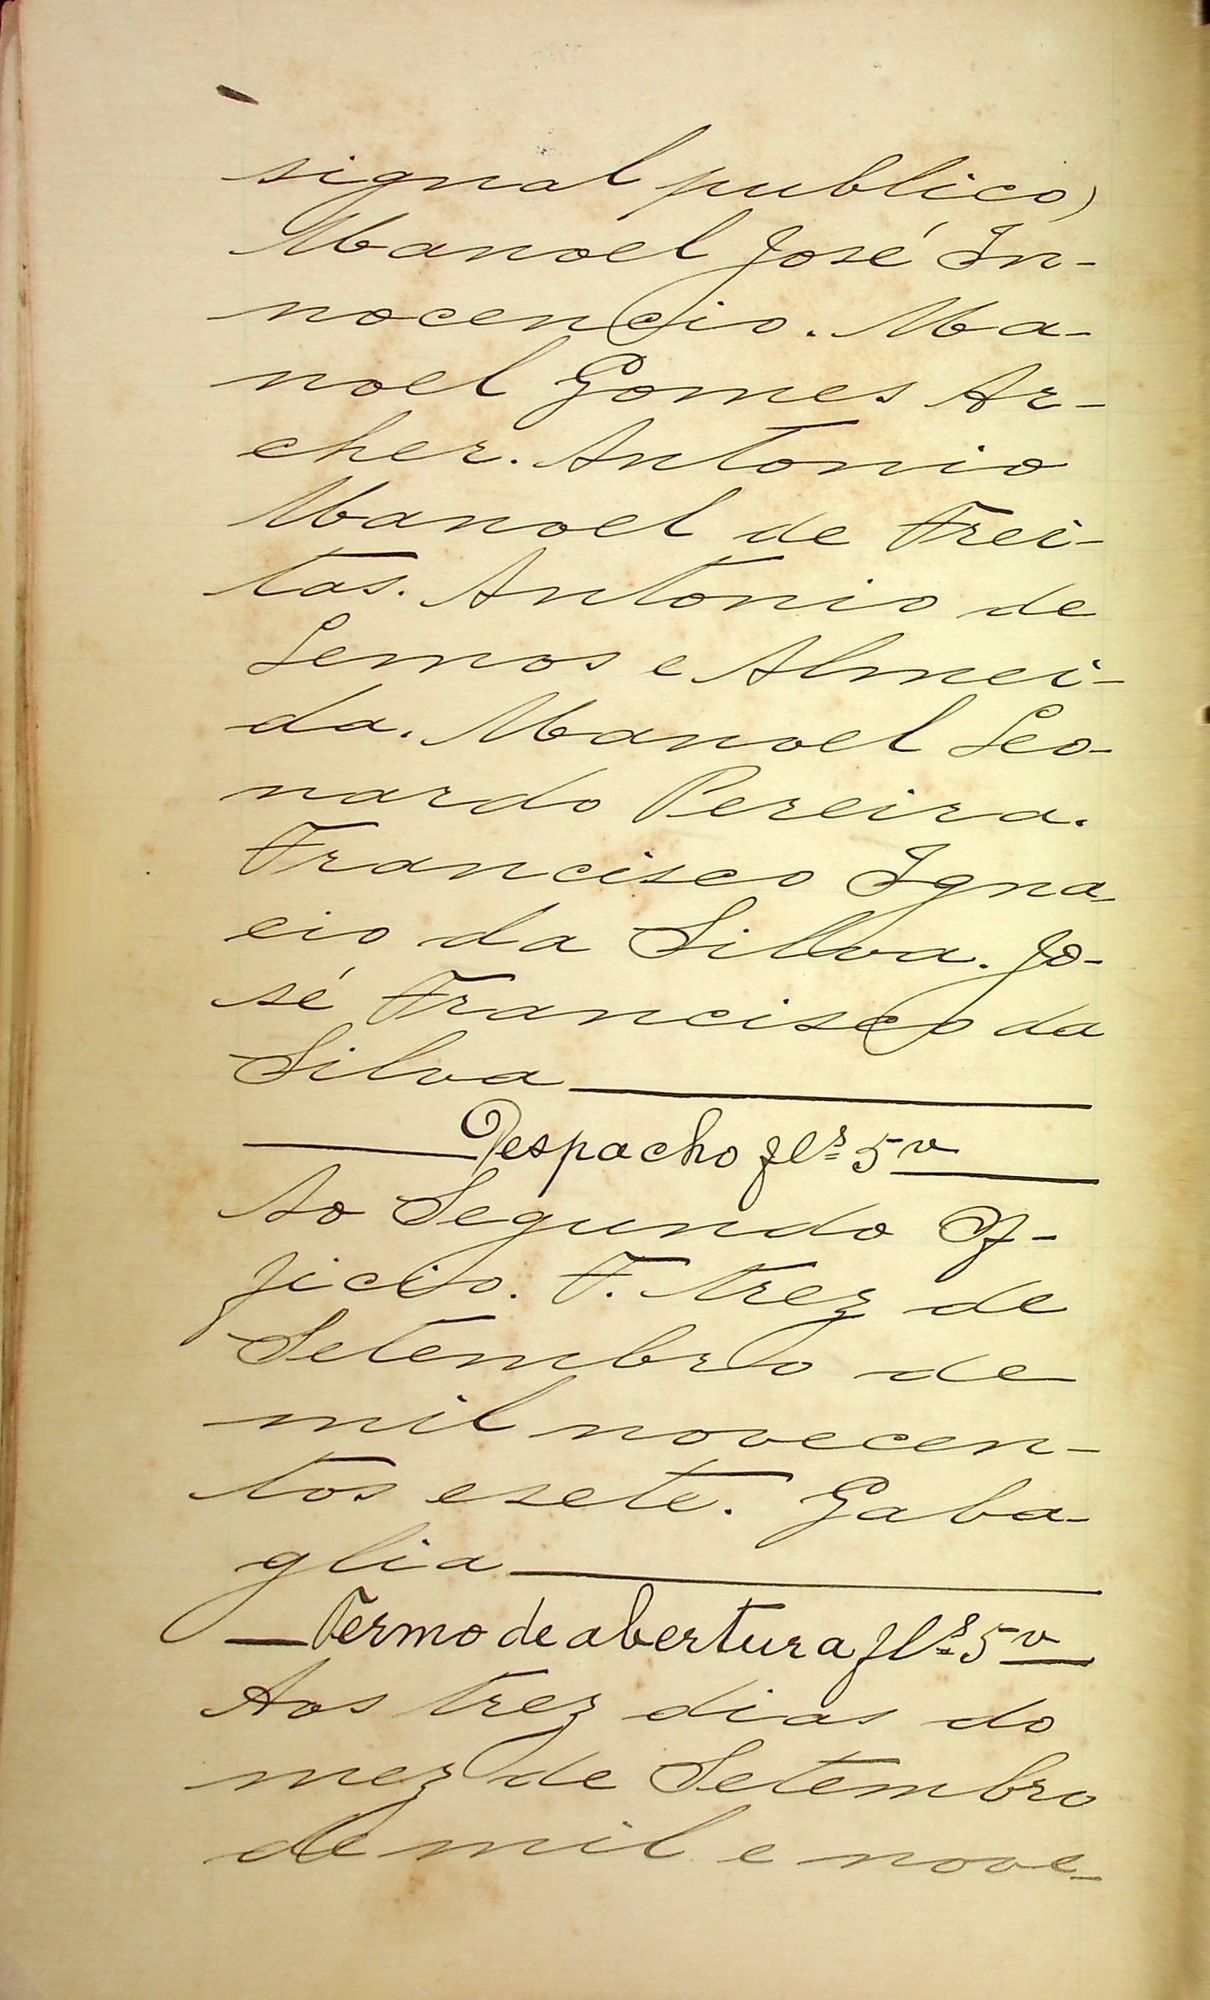 signal publico)
Manoel José In-
nocencio. Ma-
noel Gomes Ar-
cher. Antonio
Manoel de Frei-
tas. Antonio de
Lemos e Almei-
da. Manoel Leo-
nardo Pereira.
Francisco Igna-
cio da Silva. Jo-
sé Francisco da
Silva
Despacho fls 5v
Ao Segundo Of-
ficio. F. trez de
Setembro de
mil novecen-
tos e sete. Gaba-
glia
Termo de abertura fls 5v
Aos trez dias do
mez de Setembro
de mil e nove-